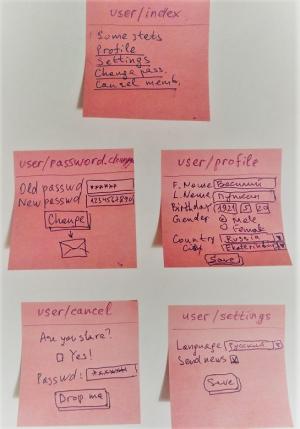 user/index
Some stets
Profile
Settings
Change pass.
Cancel memb.
user/password.change
Old passwd ******
New passwd 1234567890
Change
user/profile
F. Name Василий
L. Name Пупкин
Birthday 1921 5 20
Gender male
female
Country Russia
City Ekaterinburg
Save
user/cancel
Are you share?
Yes!
Passwd: ******
Drop me
user/settings
Language Русский
Send news
Save